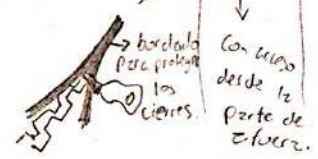 bordado
para proteger
los
cierres.
Con acceso
desde la
parte de
afuera.